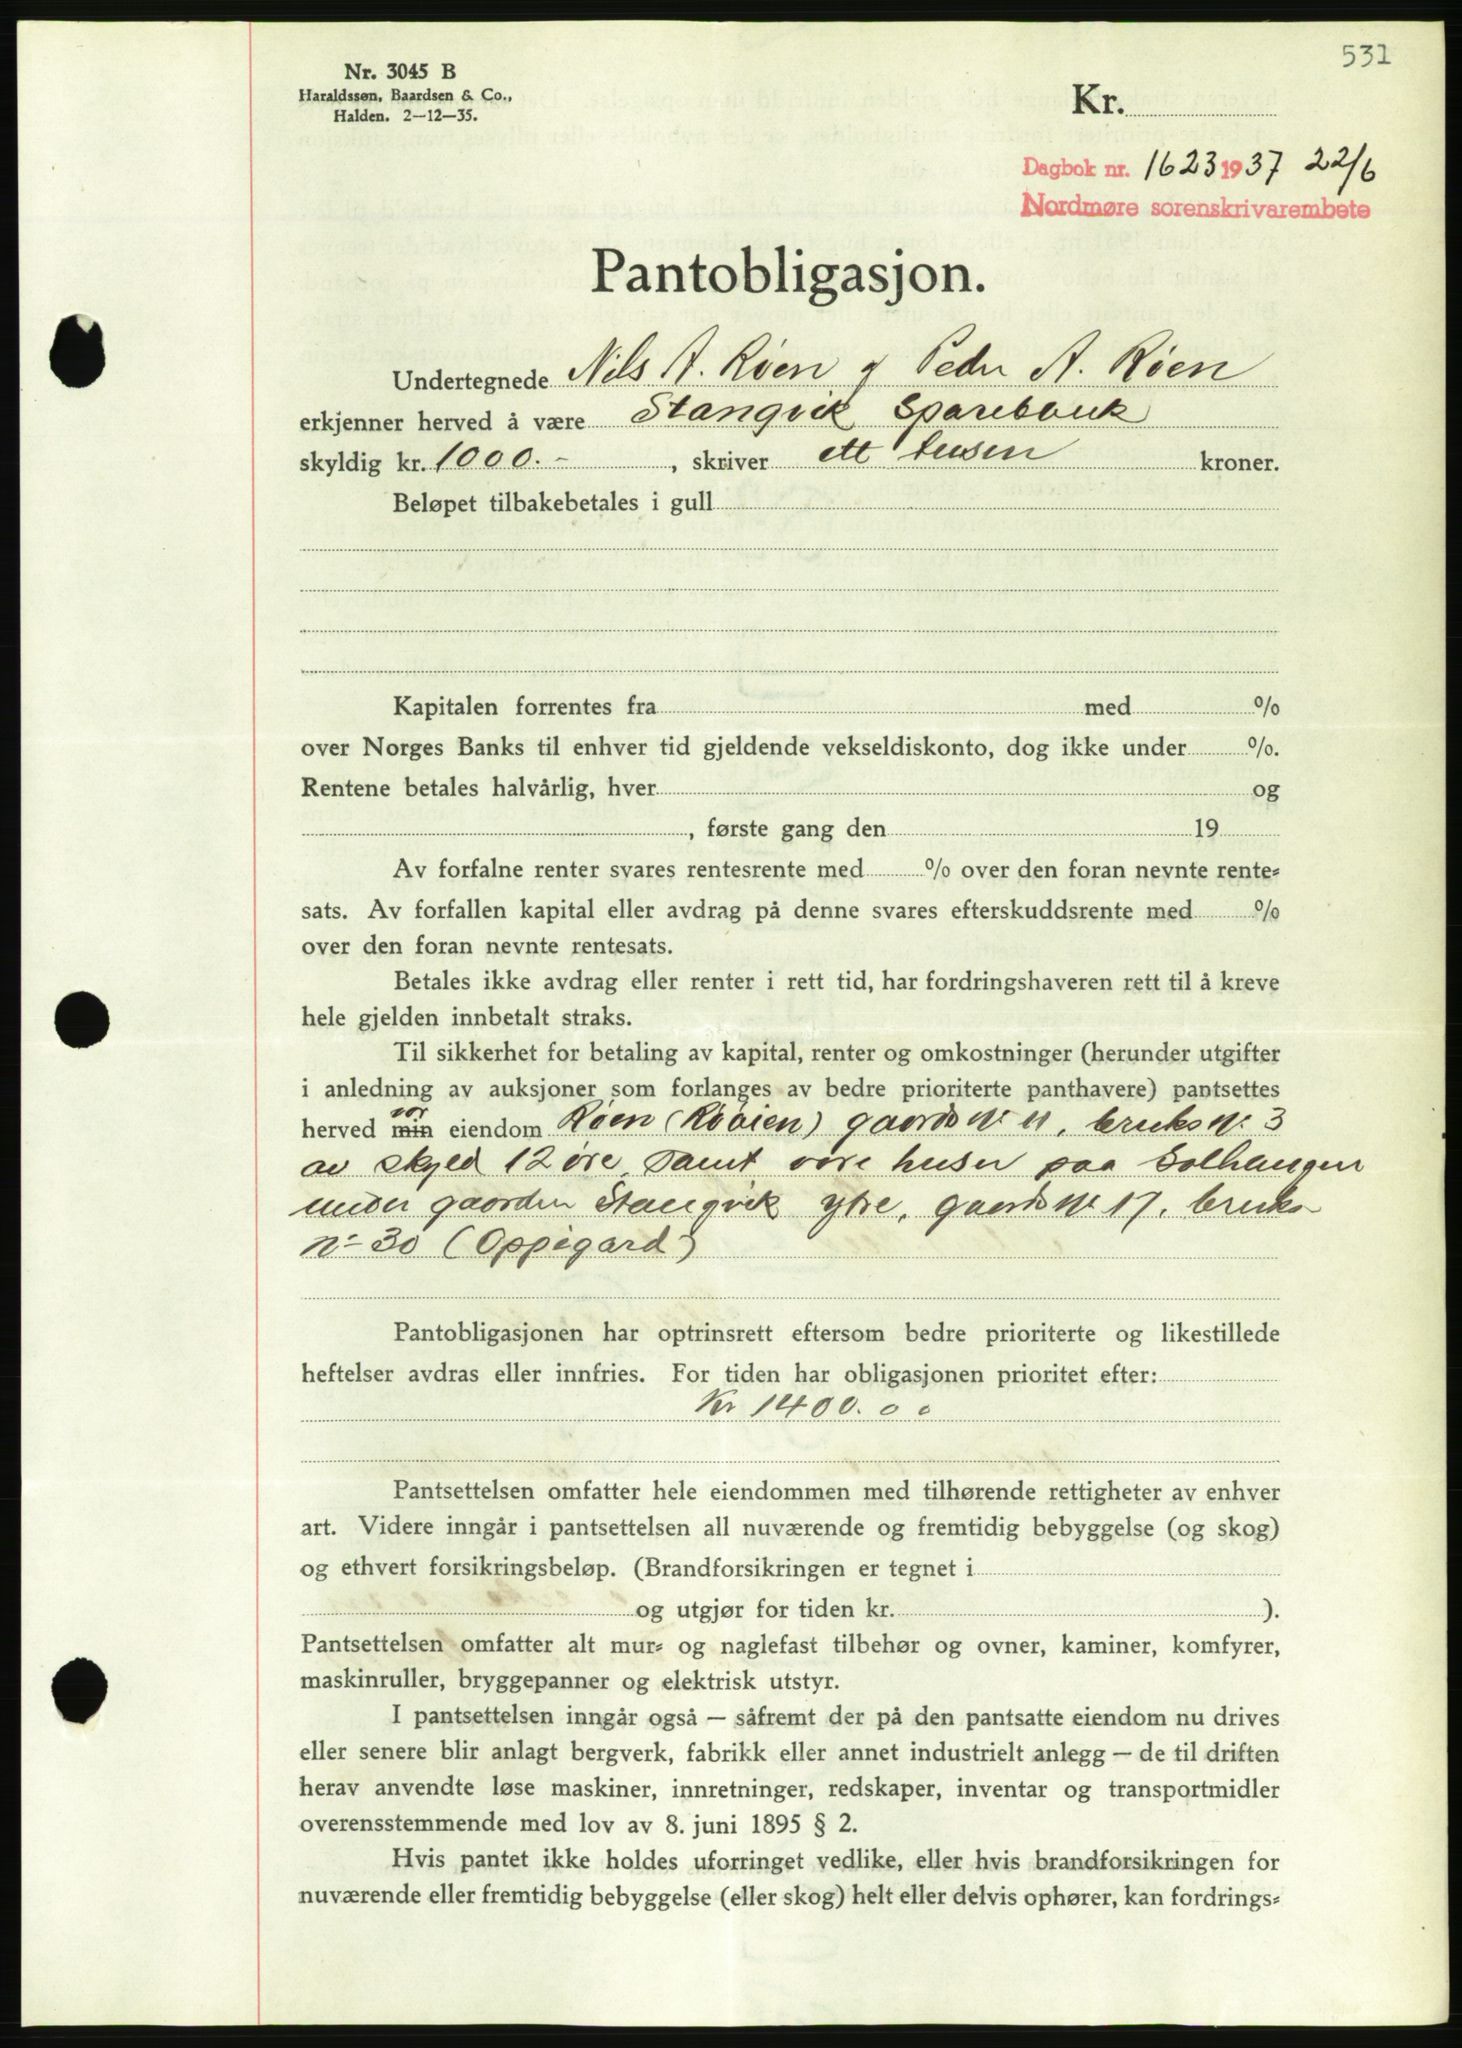 531
Nr. 3045 B
Haraldssøn, Baardsen & Co.,
Halden. 2-12-35.
Kr.
Dagbok nr. 1623 1937 22/6
Nordmøre sorenskrivarembete
Pantobligasjon.
Undertegnede Nils A. Röen og Peder A. Röen
erkjenner herved å være Stangvik Sparebank
skyldig kr. 1000.-, skriver ett tusen kroner.
Beløpet tilbakebetales i gull
Kapitalen forrentes fra med %
over Norges Banks til enhver tid gjeldende vekseldiskonto, dog ikke under %.
Rentene betales halvårlig, hver og
, første gang den 19
Av forfalne renter svares rentesrente med % over den foran nevnte rente-
sats. Av forfallen kapital eller avdrag på denne svares efterskuddsrente med %
over den foran nevnte rentesats.
Betales ikke avdrag eller renter i rett tid, har fordringshaveren rett til å kreve
hele gjelden innbetalt straks.
Til sikkerhet for betaling av kapital, renter og omkostninger (herunder utgifter
i anledning av auksjoner som forlanges av bedre prioriterte panthavere) pantsettes
herved min vor eiendom Röen (Röoien) gaards No 11, bruks No 3
av skyld 12 öre, samt våre huser paa Solhaugen
under gaarden Stangvik ytre, gaards No 17, bruks
No 30 (Oppigard)
Pantobligasjonen har optrinsrett eftersom bedre prioriterte og likestillede
heftelser avdras eller innfries. For tiden har obligasjonen prioritet efter:
Kr 1400.00
Pantsettelsen omfatter hele eiendommen med tilhørende rettigheter av enhver
art. Videre inngår i pantsettelsen all nuværende og fremtidig bebyggelse (og skog)
og ethvert forsikringsbeløp. (Brandforsikringen er tegnet i
og utgjør for tiden kr. ).
Pantsettelsen omfatter alt mur- og naglefast tilbehør og ovner, kaminer, komfyrer,
maskinruller, bryggepanner og elektrisk utstyr.
I pantsettelsen inngår også — såfremt der på den pantsatte eiendom nu drives
eller senere blir anlagt bergverk, fabrikk eller annet industrielt anlegg — de til driften
herav anvendte løse maskiner, innretninger, redskaper, inventar og transportmidler
overensstemmende med lov av 8. juni 1895 § 2.
Hvis pantet ikke holdes uforringet vedlike, eller hvis brandforsikringen for
nuværende eller fremtidig bebyggelse (eller skog) helt eller delvis ophører, kan fordrings-